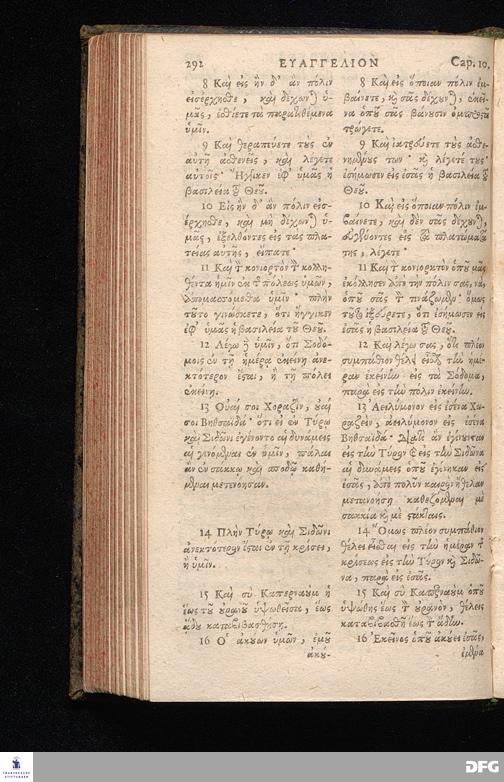 292 ΕΥΑΓΓΕΛΙΟΝ Cap. 10.
8 Καὶ εἰς ἣν δ' ἂν πόλιν
εἰσέρχησθε, καὶ δέχωνται ὑ-
μᾶς, ἐσθίετε τὰ παρατιθέμενα
ὑμῖν.
9 Καὶ θεραπεύετε τοὺς ἐν
αὐτῇ ἀσθενεῖς, καὶ λέγετε
αὐτοῖς· Ἤγγικεν ἐφ' ὑμᾶς ἡ
βασιλεία τοῦ Θεοῦ.
10 Εἰς ἣν δ' ἂν πόλιν εἰσ-
έρχησθε, καὶ μὴ δέχωνται ὑ-
μᾶς, ἐξελθόντες εἰς τὰς πλα-
τείας αὐτῆς, εἴπατε·
11 Καὶ τὸν κονιορτὸν τὸν κολλη-
θέντα ἡμῖν ἐκ τῆς πόλεως ὑμῶν,
ἀπομασσόμεθα ὑμῖν· πλὴν
τοῦτο γινώσκετε, ὅτι ἤγγικεν
ἐφ' ὑμᾶς ἡ βασιλεία τοῦ Θεοῦ.
12 Λέγω δὲ ὑμῖν, ὅτι Σοδό-
μοις ἐν τῇ ἡμέρᾳ ἐκείνῃ ἀνε-
κτότερον ἔσται, ἢ τῇ πόλει
ἐκείνῃ.
13 Οὐαί σοι Χοραζὶν, οὐαί
σοι Βηθσαϊδά· ὅτι εἰ ἐν Τύρῳ
καὶ Σιδῶνι ἐγένοντο αἱ δυνάμεις
αἱ γενόμεναι ἐν ὑμῖν, πάλαι
ἂν ἐν σάκκῳ καὶ σποδῷ καθή-
μεναι μετενόησαν.
14 Πλὴν Τύρῳ καὶ Σιδῶνι
ἀνεκτότερον ἔσται ἐν τῇ κρίσει,
ἢ ὑμῖν.
15 Καὶ σὺ Καπερναοὺμ ἡ
ἕως τοῦ οὐρανοῦ ὑψωθεῖσα, ἕως
ᾅδου καταβιβασθήσῃ.
16 Ὁ ἀκούων ὑμῶν, ἐμοῦ
ἀκού-
8 Καὶ εἰς ὅποιαν πόλιν ἐμ-
βαίνετε, καὶ σᾶς δέχονται, ἐκεῖ-
να ὁποῦ σᾶς βάνουσιν ὀμπροστὰ
τρώγετε.
9 Καὶ ἰατρεύετε τοὺς ἀσθε-
νημένους των· καὶ λέγετέ τους·
ἐσίμωσεν εἰς ἐσᾶς ἡ βασιλεία τοῦ
Θεοῦ.
10 Καὶ εἰς ὅποιαν πόλιν ἐμ-
βαίνετε, καὶ δὲν σᾶς δέχονται,
εὐγένοντες εἰς τὰ πλατώματά
της, λέγετε·
11 Καὶ τὸν κονιορκτὸν ὁποῦ μᾶς
ἐκόλλησεν ἀπὸ τὴν πόλιν σας, νὰ,
ὁποῦ σᾶς τὸν τινάζομεν· ὅμως
τοῦτο ἐξεύρετε, ὅτι ἐσίμωσεν εἰς
ἐσᾶς ἡ βασιλεία τοῦ Θεοῦ.
12 Καὶ λέγω σας, ὅτι πλέον
συμπάθιον θέλει εἶσθαι τὴν ἡμέ-
ραν ἐκείνην εἰς τὰ Σόδομα,
παρὰ εἰς τὴν πόλιν ἐκείνην.
13 Ἀειλύμονον εἰς ἐσένα Χο-
ραζεὶν, ἀειλύμονον εἰς ἐσένα
Βηθσαϊδά· Διατὶ ἂν ἐγίνονταν
εἰς τὴν Τύρον καὶ εἰς τὴν Σιδῶνα
αἱ δυνάμεις ὁποῦ ἐγίνηκαν εἰς
ἐσᾶς, ἀπὸ πολὺν καιρὸν ἤθελαν
μετανοήση καθεζόμεναι μὲ
σακκία καὶ μὲ στάκταις.
14 Ὅμως πλέον συμπάθιον
θέλει εἶσθαι εἰς τὴν ἡμέραν τῆς
κρίσεως εἰς τὴν Τύρον καὶ Σιδῶ-
να, παρὰ εἰς ἐσᾶς.
15 Καὶ σὺ Καπερναοὺμ ὁποῦ
ὑψώθης ἕως τὸν οὐρανὸν, θέλεις
καταβιβασθῆ ἕως τὸν ᾅδην.
16 Ἐκεῖνος ὁποῦ ἀκούει ἐσᾶς,
ἐμένα
FRANCKESCHE STIFTUNGEN
DFG